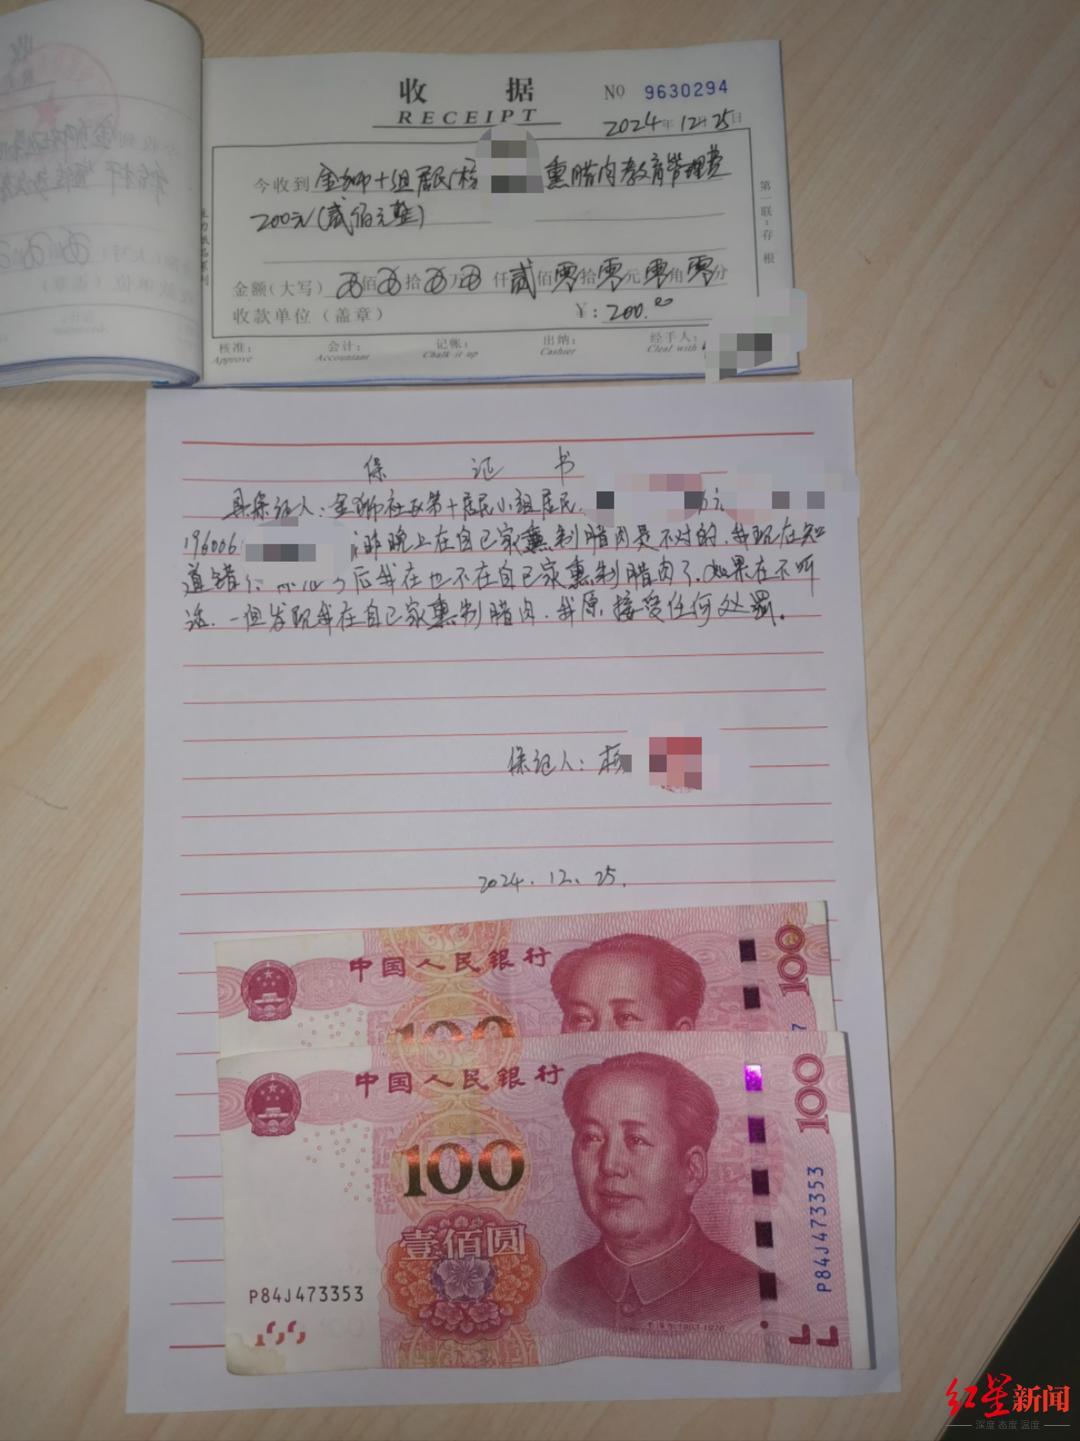 收 据
RECEIPT
№ 9630294
2024年12月25日
今收到 金狮十组居民 熏腊肉教育管理费
200元(贰佰元整)
金额(大写) 佰 拾 万 仟 贰佰零拾零元零角零分
收款单位(盖章) ¥:200.00
核准: 会计: 记帐: 出纳: 经手人:
Approve Accountant Chalk it up Cashier Cleal with
第一联:存根
保 证 书
具保证人:金狮社区第十居民小组居民,
196006 昨晚上在自己家熏制腊肉是不对的,我现在知
道错 后我在也不在自己家熏制腊肉了,如果在不听
话,一但发现我在自己家熏制腊肉,我原接受任何处罚。
保证人:
2024.12.25.
中国人民银行
100
100
中国人民银行
100
100
壹佰圆
P84J473353
P84J473353
红星新闻
深度 态度 温度